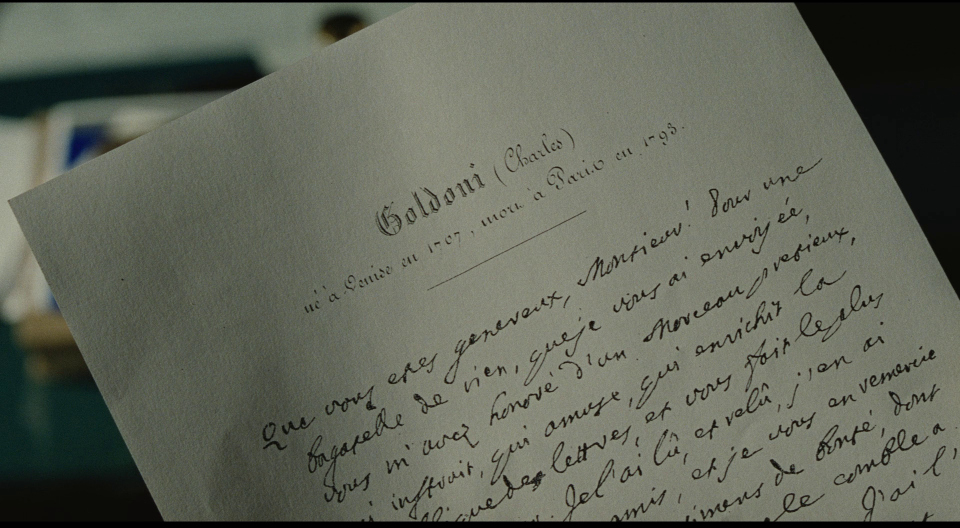 Goldoni (Charles)
né à Venise en 1707, mort à Paris en 1793.
Que vous etes genereux, Monsieur! Pour une
bagatelle de rien, que je vous ai envoyée,
vous m'avez honoré d'un Morceau pretieux,
qui instruit, qui amuse, qui enrichit la
des lettres, et vous fait le plus
Je l'ai lû, et relû, j'en ai
amis, et je vous en remercie
de bonté, dont
le comble a
J'ai l'